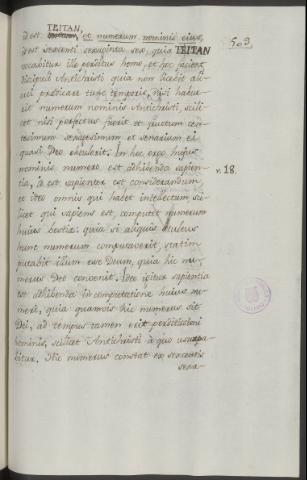 TEITAN,
509
id est et numerum nominis eius,
id est sexcenti sexaginta sex, quia TEITAN
vocabitur ille perditus homo, et hoc facient
discipuli Antichristi quia non licebit ali-
cui praedicare tunc temporis, nisi habue-
rit numerum nominis Antichristi, scili-
cet nisi perfectus fuerit et fructum cen-
tesimum sexagesimum et senarium ei
quasi Deo obtulerit. In hoc ergo huius
nominis numero est adhibenda sapien-
tia, id est sapienter est considerandum,
v. 18.
et ideo omnis qui habet intellectum, sci-
licet qui sapiens est, computet numerum
huius bestiae: quia si aliquis
hunc numerum computaverit, statim
putabit illum esse Deum, quia hic nu-
merus Deo convenit. Ideo igitur sapientia
est adhibenda in computatione huius nu-
meri, quia quamvis hic numerus sit
Dei, ad tempus tamen erit perditissimi
hominis, scilicet Antichristi à quo usurpa-
bitur. Hic numerus constat ex sexcentis
sexa-